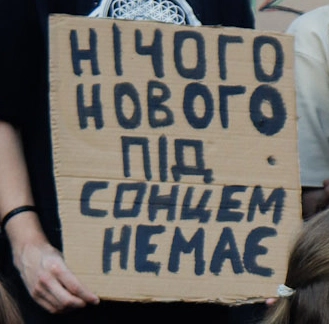 НІЧОГО
НОВОГО
ПІД
СОНЦЕМ
НЕМАЄ